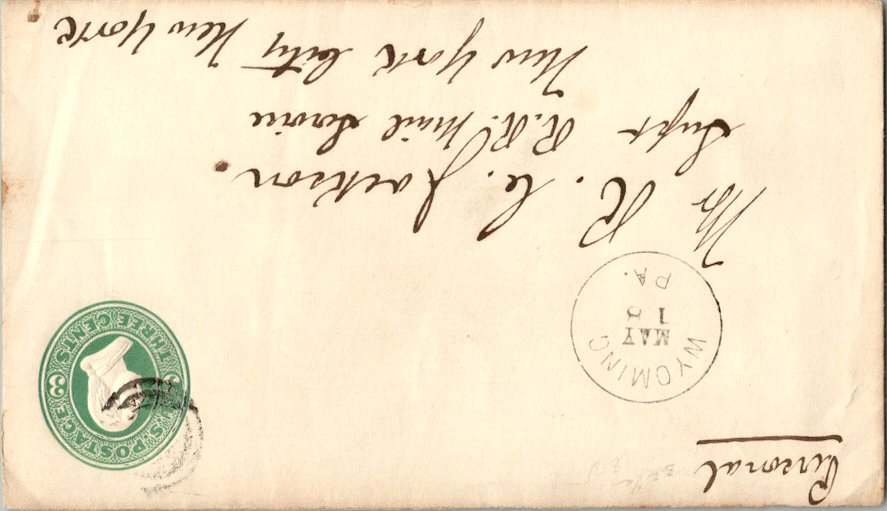 Personal
WYOMING
MAY
18
PA.
U.S. POSTAGE
3 3
THREE CENTS
Mr R. C. Jackson.
Supt R.R. Mail Service
New York City New York